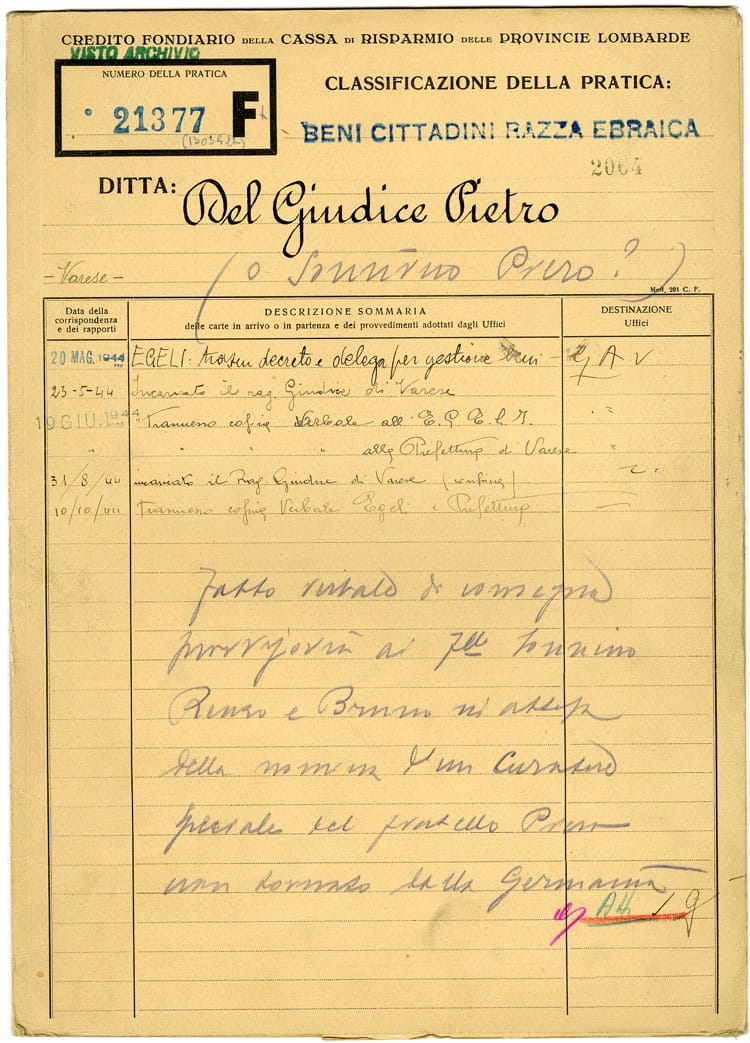 CREDITO FONDIARIO DELLA CASSA DI RISPARMIO DELLE PROVINCIE LOMBARDE
VISTO ARCHIVIO
NUMERO DELLA PRATICA
21377 F
CLASSIFICAZIONE DELLA PRATICA:
BENI CITTADINI RAZZA EBRAICA
2064
DITTA: Del Giudice Pietro
(o Sonnino Piero?)
- Varese -
Mod. 201 C. F.
Data della corrispondenza e dei rapporti
DESCRIZIONE SOMMARIA
delle carte in arrivo o in partenza e dei provvedimenti adottati dagli Uffici
DESTINAZIONE
Uffici
20 MAG. 1944 EGELI: trasm decreto e delega per gestione beni -
23-5-44 Incaricato il rag. Giudice di Varese
19 GIU. 1944 Trasmesso copia Verbale all' E.G.E.L.I.
" " " " alla Prefettura di Varese "
31/8/44 incaricato il Rag. Giudice di Varese
10/10/44 Trasmesso copia Verbale Egeli e Prefettura
Fatto verbale di consegna
provvisoria ai Flli Sonnino
Renzo e Bruno in attesa
della nomina d'un Curatore
speciale del fratello Piero
non tornato dalla Germania